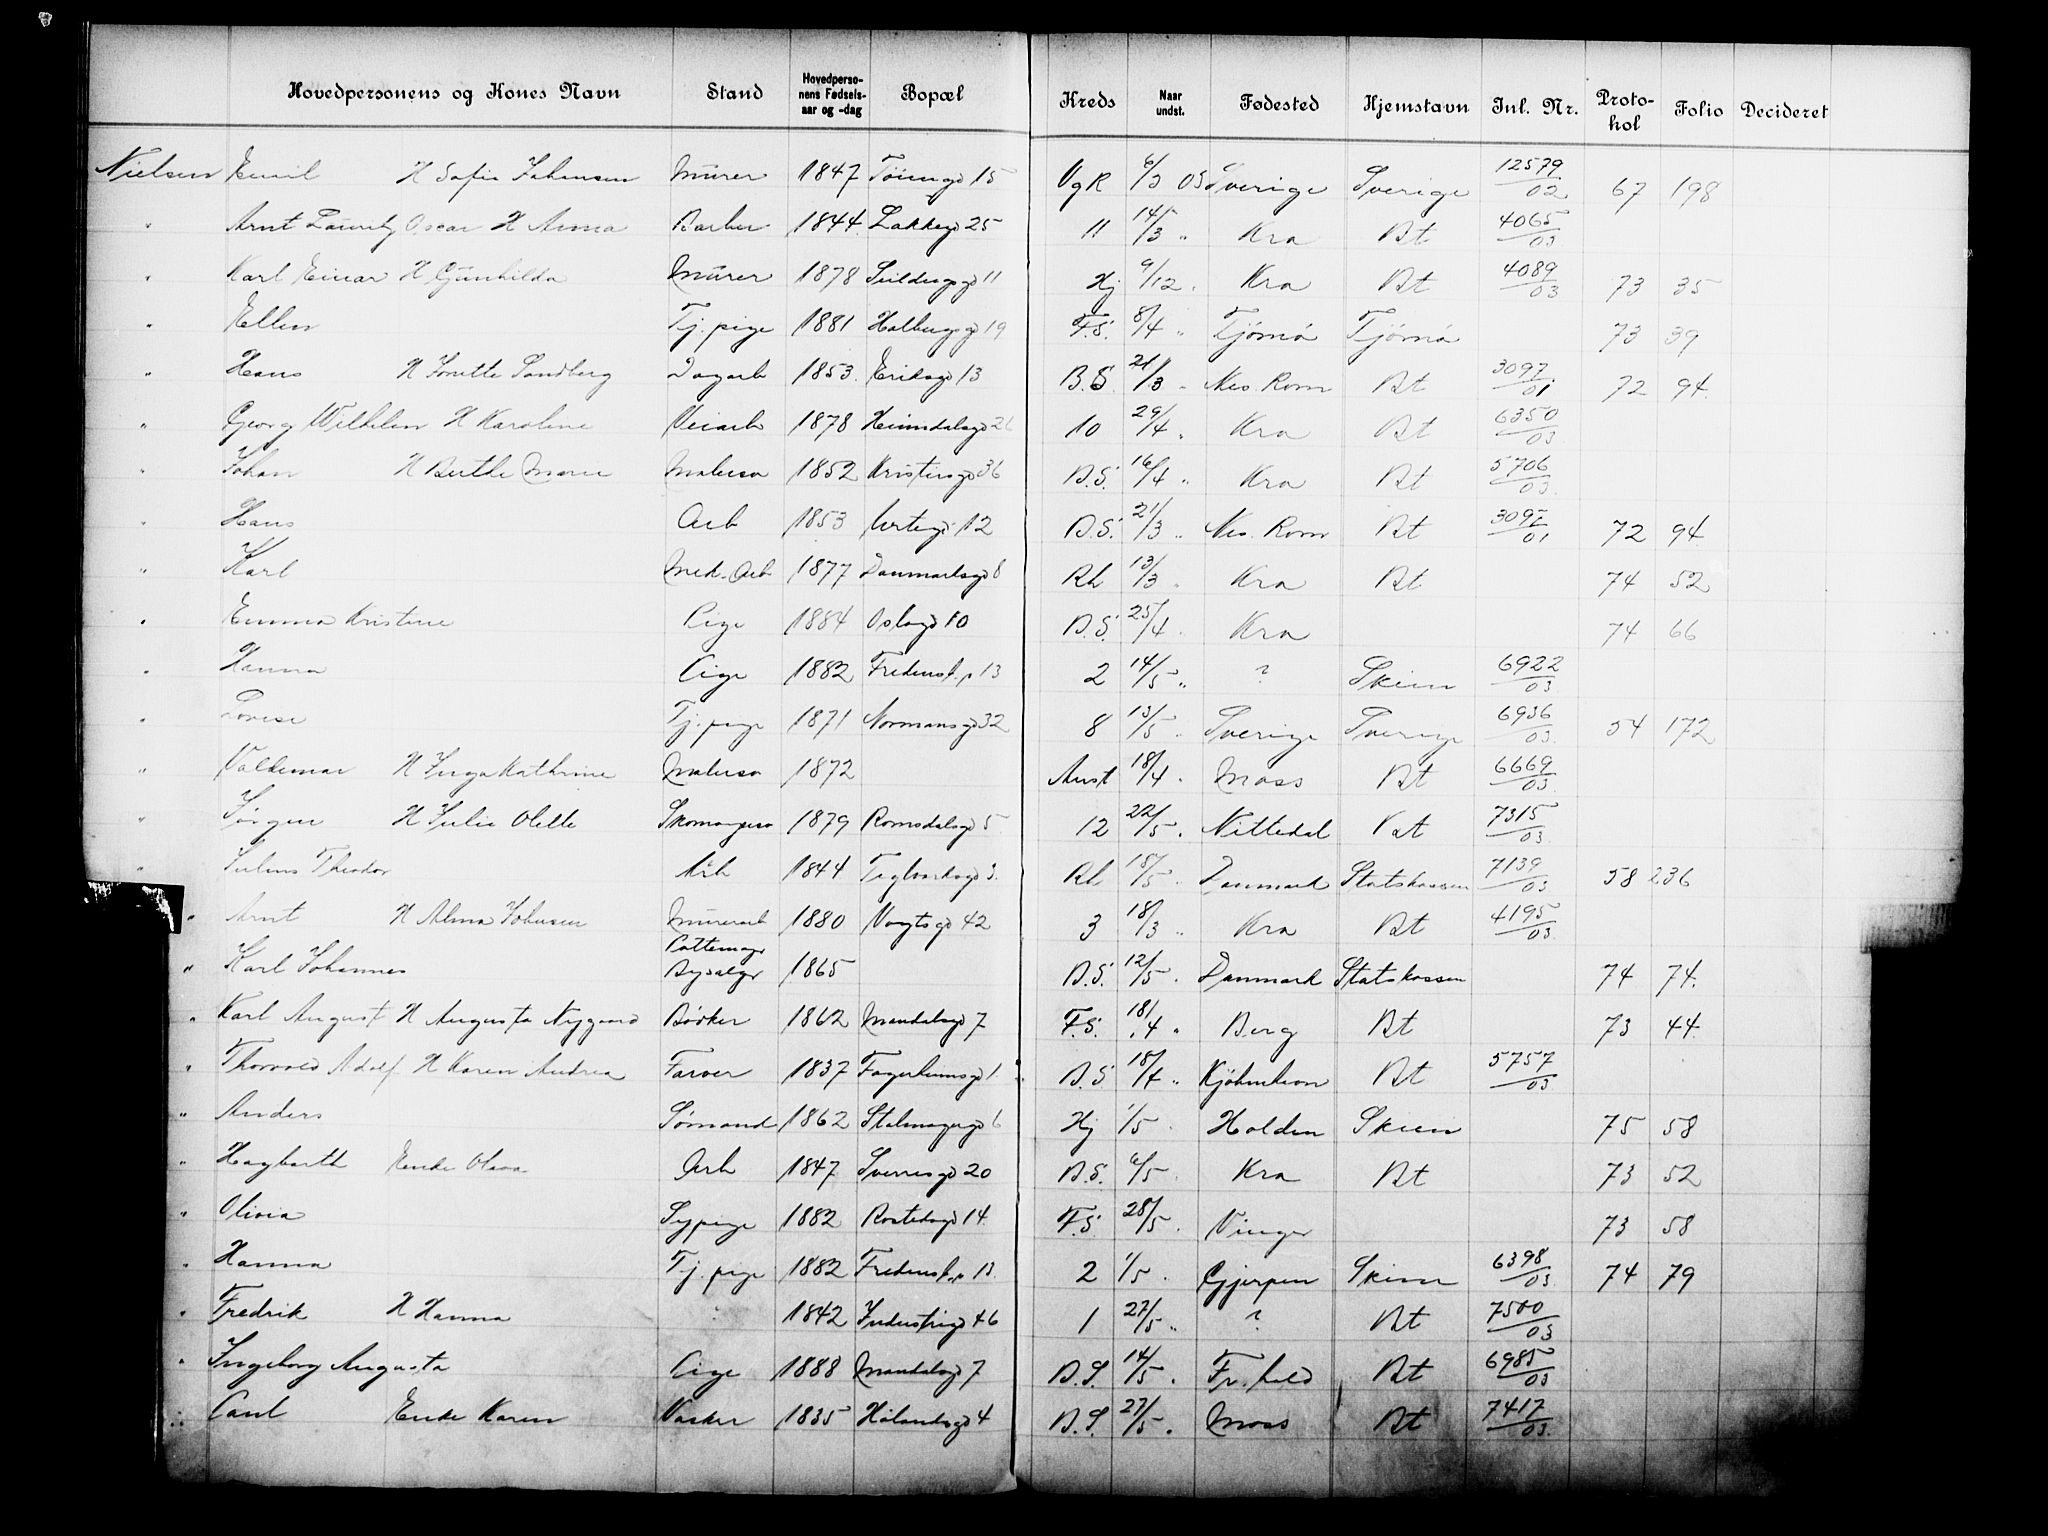 Hovedpersonens og Kones Navn Stand Hovedpersonens Fødselsaar og -dag Bopæl Kreds Naar undst. Fødested Hjemstavn Inl. Nr. Protokol Folio Decideret
Nielsen Emil H Sofie Johansen Murer 1847 Tøiengd 15 VgK 6/3 03 Sverige Sverige 12579/02 67 198
" Arnt Lauritz Oscar H Anna Barber 1844 Lakkegd 25 11 14/3 " Kra Bt 4065/03
" Karl Einar H Gunhilda Murer 1878 11 Hj 9/12 " Kra Bt 4089/03 73 35
" Ellen Tj. pige 1881 Holbergsgd 19 F.S. 8/4 " Tjömö Tjömö 73 39
" Hans H Sandberg Dagarb 1853 Eriksgd 13 B.S. 21/3 " Nes. Rom Bt 3097/01 72 94
" Georg Wilhelm H Karoline Veiarb 1878 Heimdalsgd 26 10 29/4 " Kra Bt 6350/03
" Johan H Berthe Marie Malersv 1852 Kristiansgd 36 B.S. 16/4 " Kra Bt 5706/03
" Hans Arb 1853 Urtegd 12 B.S. 21/3 " Nes. Rom Bt 3097/01 72 94
" Karl Mek. Arb 1877 Danmarksgd 8 Rh 13/3 " Kra Bt 74 52
" Emma Kristine Pige 1884 Oslogd 10 B.S. 25/4 " Kra 74 66
" Hanna Pige 1882 Fredensb.v 13 2 14/5 " ? Skien 6922/03
" Lovise Tj. pige 1871 Normansgd 32 8 13/5 " Sverige Sverige 6936/03 54 172
" Valdemar H Inga Kathrine Malersv 1872 Aust 18/4 " Moss Bt 6669/03
" Jørgen H Julie Olette Skomagersv 1879 Romsdalsgd 5 12 22/5 " Nittedal Bt 7315/03
" Julius Theodor Arb 1844 Teglverksgd 3 Rh 18/5 " Danmark Statskassen 7139/03 58 236
" Arnt H Alma Johnsen Murerarb 1880 Vogtsgd 42 3 18/3 " Kra Bt 4195/03
Pottemagr
" Karl Johannes Bysælgr 1865 B.S. 12/5 " Danmark Statskassen 74 74
" Karl August H Augusta Nygaard Bødker 1862 Mandalsgd 7 F.S. 18/4 " Berg Bt 73 44
" Thorvald Adolf H Karen Andrea Farver 1837 Fagerheimsgd 1 B.S 18/4 " Kjöbenhavn Bt 5757/03
" Anders Sømand 1862 Stalmagergd 6 Hj 1/5 " Holden Skien 75 58
" Hagbarth Enke Olava Arb 1847 Sverresgd 20 B.S. 6/5 " Kra Bt 73 52
" Olivia Sypige 1882 Rostedsgd 14 F.S. 28/5 " Vinger 73 58
" Hanna Tj. pige 1882 Fredensb.v 13 2 1/5 " Gjerpen Skien 6398/03 74 79
" Fredrik H Hanna " 1842 Industrigd 46 1 27/5 " ? Bt 7500/03
" Ingeborg Augusta Pige 1888 Mandalsgd 7 B.S. 14/5 " Fr.hald Bt 6985/03
" Carl Enke Karen Vasker 1835 Hølandsgd 4 B.S. 27/5 " Moss Bt 7417/03